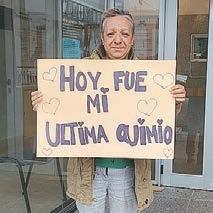 HOY, FUE
MI
ULTIMA QUIMIO